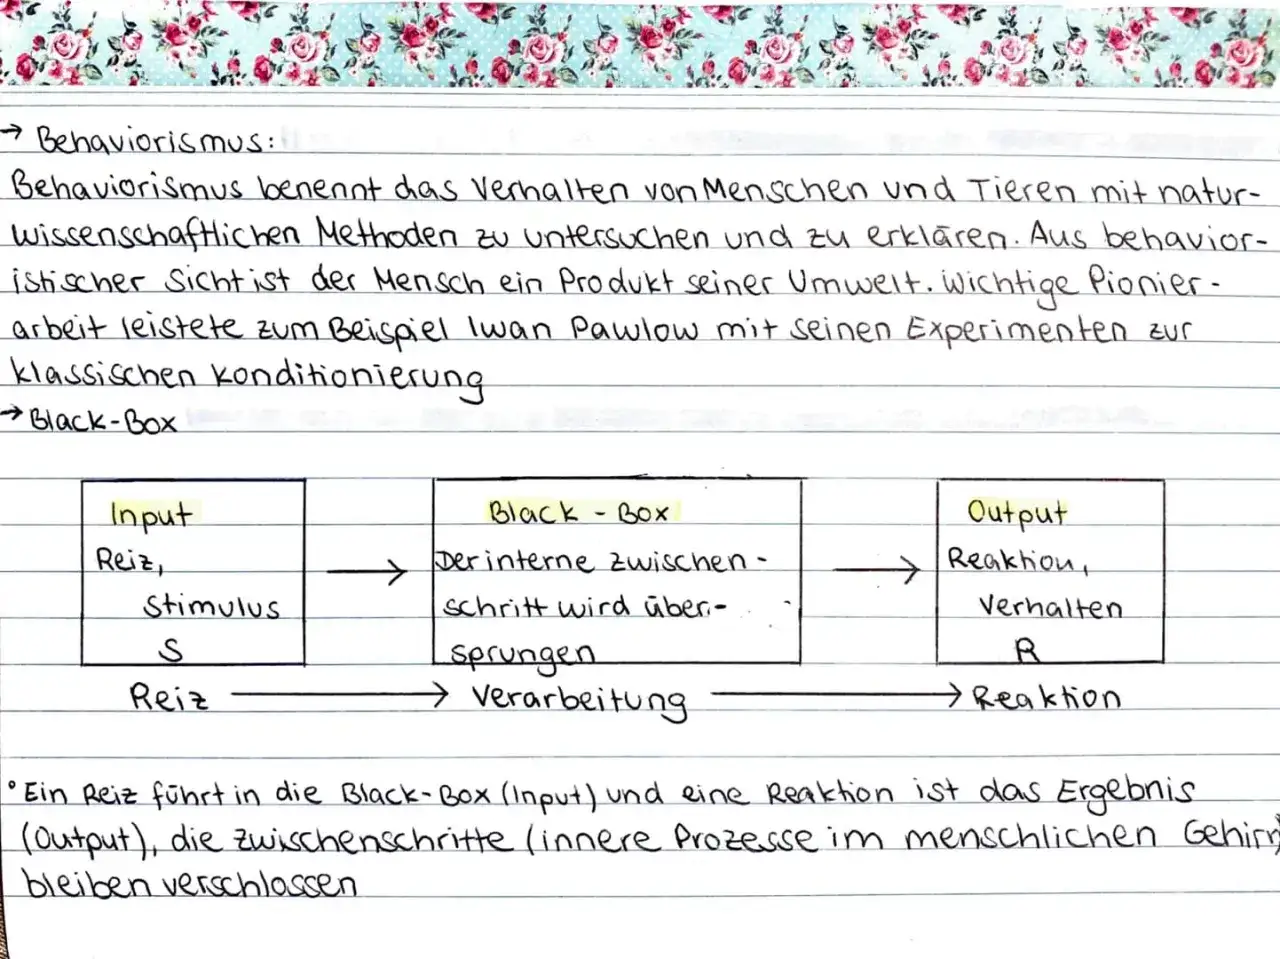 → Behaviorismus:
Behaviorismus benennt das Verhalten von Menschen und Tieren mit natur-
wissenschaftlichen Methoden zu untersuchen und zu erklären. Aus behavior-
istischer Sicht ist der Mensch ein Produkt seiner Umwelt. Wichtige Pionier-
arbeit leistete zum Beispiel Iwan Pawlow mit seinen Experimenten zur
klassischen Konditionierung
→ Black-Box
Input
Reiz,
Stimulus
S
→
Black-Box
Der interne zwischen-
schritt wird über-
sprungen
→
Output
Reaktion,
Verhalten
R
Reiz → Verarbeitung → Reaktion
° Ein Reiz führt in die Black-Box (Input) und eine Reaktion ist das Ergebnis
(Output), die zwischenschritte (innere Prozesse im menschlichen Gehirn)
bleiben verschlossen